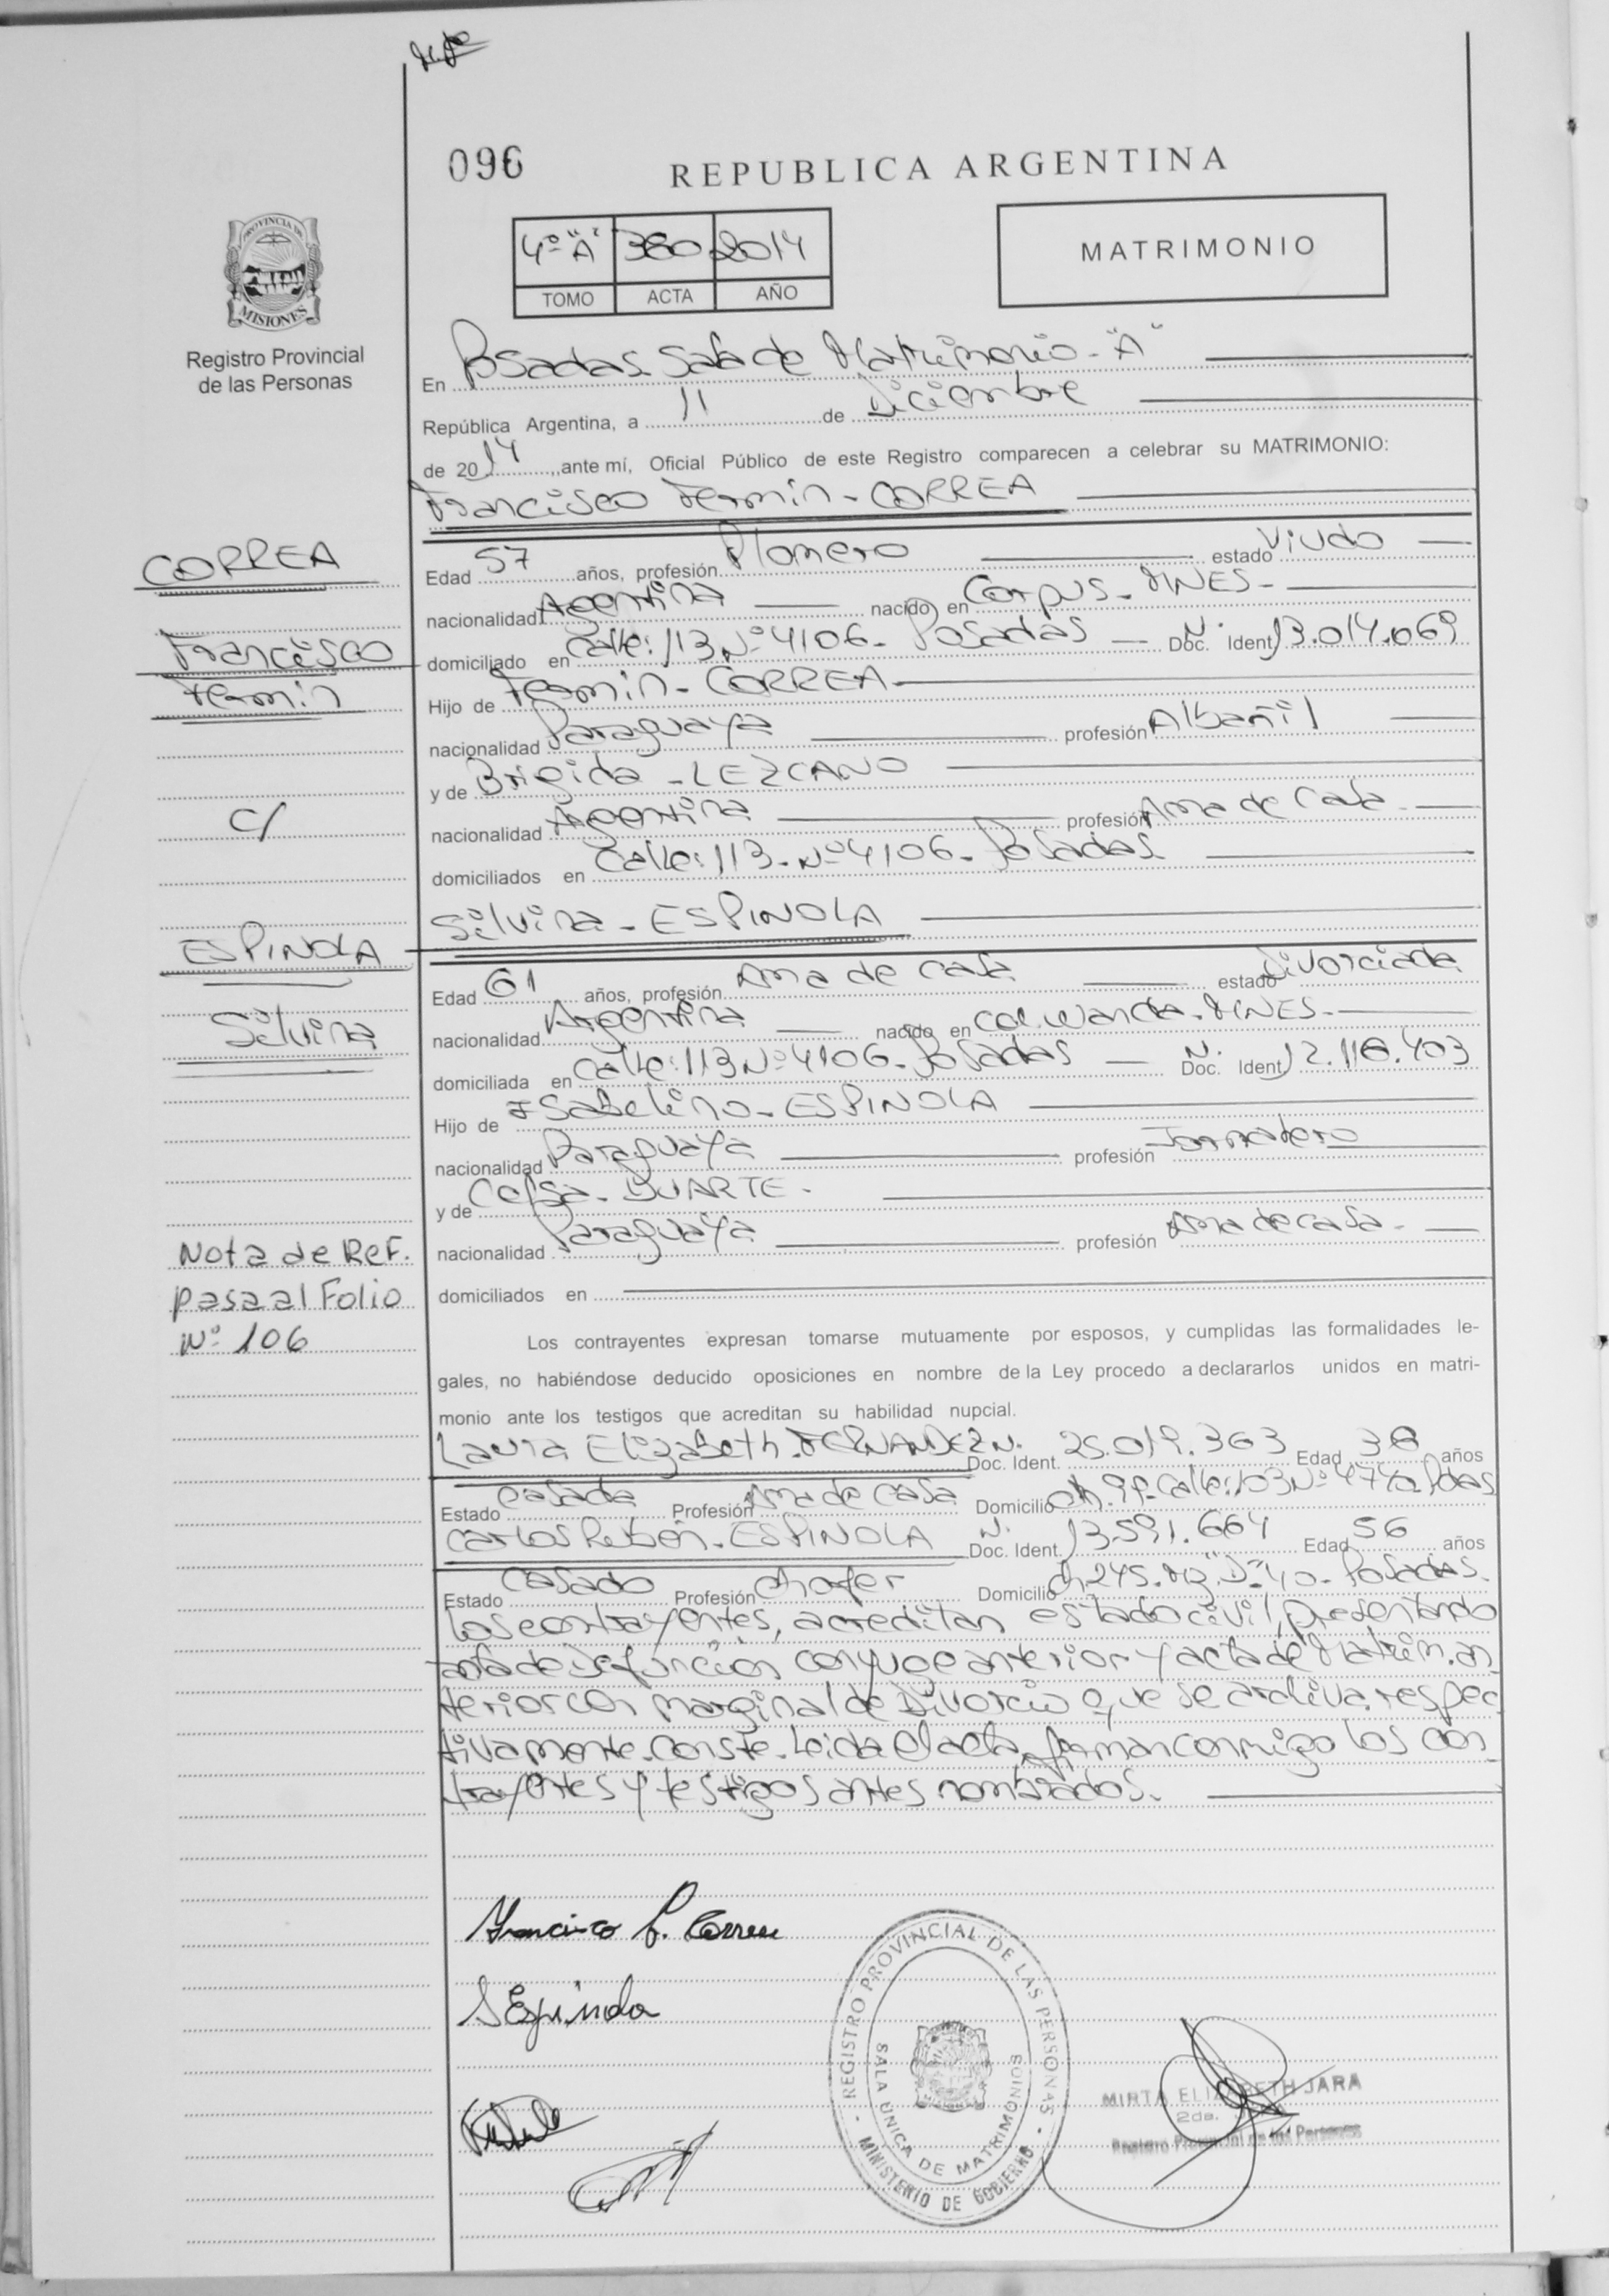 096
REPUBLICA ARGENTINA
PROVINCIA DE
MISIONES
Registro Provincial
de las Personas
4º "A" 380 2014
TOMO ACTA AÑO
MATRIMONIO
En Posadas. Sala de Matrimonio - "A"
República Argentina, a 11 de Diciembre
de 2014, ante mí, Oficial Público de este Registro comparecen a celebrar su MATRIMONIO:
Francisco Fermin - CORREA
CORREA
Francisco
Fermin
c/
ESPINOLA
Silvina
Edad 57 años, profesión Plomero estado Viudo
nacionalidad Argentina nacido en Corpus - MNES -
domiciliado en Calle: 113 Nº 4106 - Posadas N. Doc. Ident 13.014.069
Hijo de Fermin - CORREA
nacionalidad Paraguaya profesión Albañil
y de Brigida - LEZCANO
nacionalidad Argentina profesión Ama de Casa -
domiciliados en Calle: 113 - Nº 4106 - Posadas
Silvina - ESPINOLA
Edad 61 años, profesión Ama de casa estado Divorciada
nacionalidad Argentina nacido en Col. Wanda - MNES -
domiciliada en Calle: 113 Nº 4106 - Posadas N. Doc. Ident 12.118.403
Hijo de Isabelino - ESPINOLA
nacionalidad Paraguaya profesión Jornalero
y de Celsa - DUARTE -
nacionalidad Paraguaya profesión Ama de casa -
domiciliados en
Nota de Ref.
pasa al Folio
Nº 106
Los contrayentes expresan tomarse mutuamente por esposos, y cumplidas las formalidades le-
gales, no habiéndose deducido oposiciones en nombre de la Ley procedo a declararlos unidos en matri-
monio ante los testigos que acreditan su habilidad nupcial.
Laura Elizabeth - FERNANDEZ N. Doc. Ident. 25.019.363 Edad 38 años
Estado Casada Profesión Ama de casa Domicilio Ch. Calle: 103 Nº 4740 Pdas
Carlos Rubén - ESPINOLA N. Doc. Ident. 13.591.664 Edad 56 años
Estado Casado Profesión Chofer Domicilio Ch 245 - Mz. "D" - 40 - Posadas.
Los contrayentes, acreditan estado civil, presentando
acta de Defunción conyuge anterior y acta de Matrim. an-
terior con marginal de Divorcio que se archiva respec
tivamente. Conste. Leida el acta, firman conmigo los con-
trayentes y testigos antes nombrados.
Francisco F. Correa
S Espinola
REGISTRO PROVINCIAL DE LAS PERSONAS
SALA UNICA DE MATRIMONIOS
MINISTERIO DE GOBIERNO
MIRTA ELIZABETH JARA
2da.
Registro Provincial de las Personas